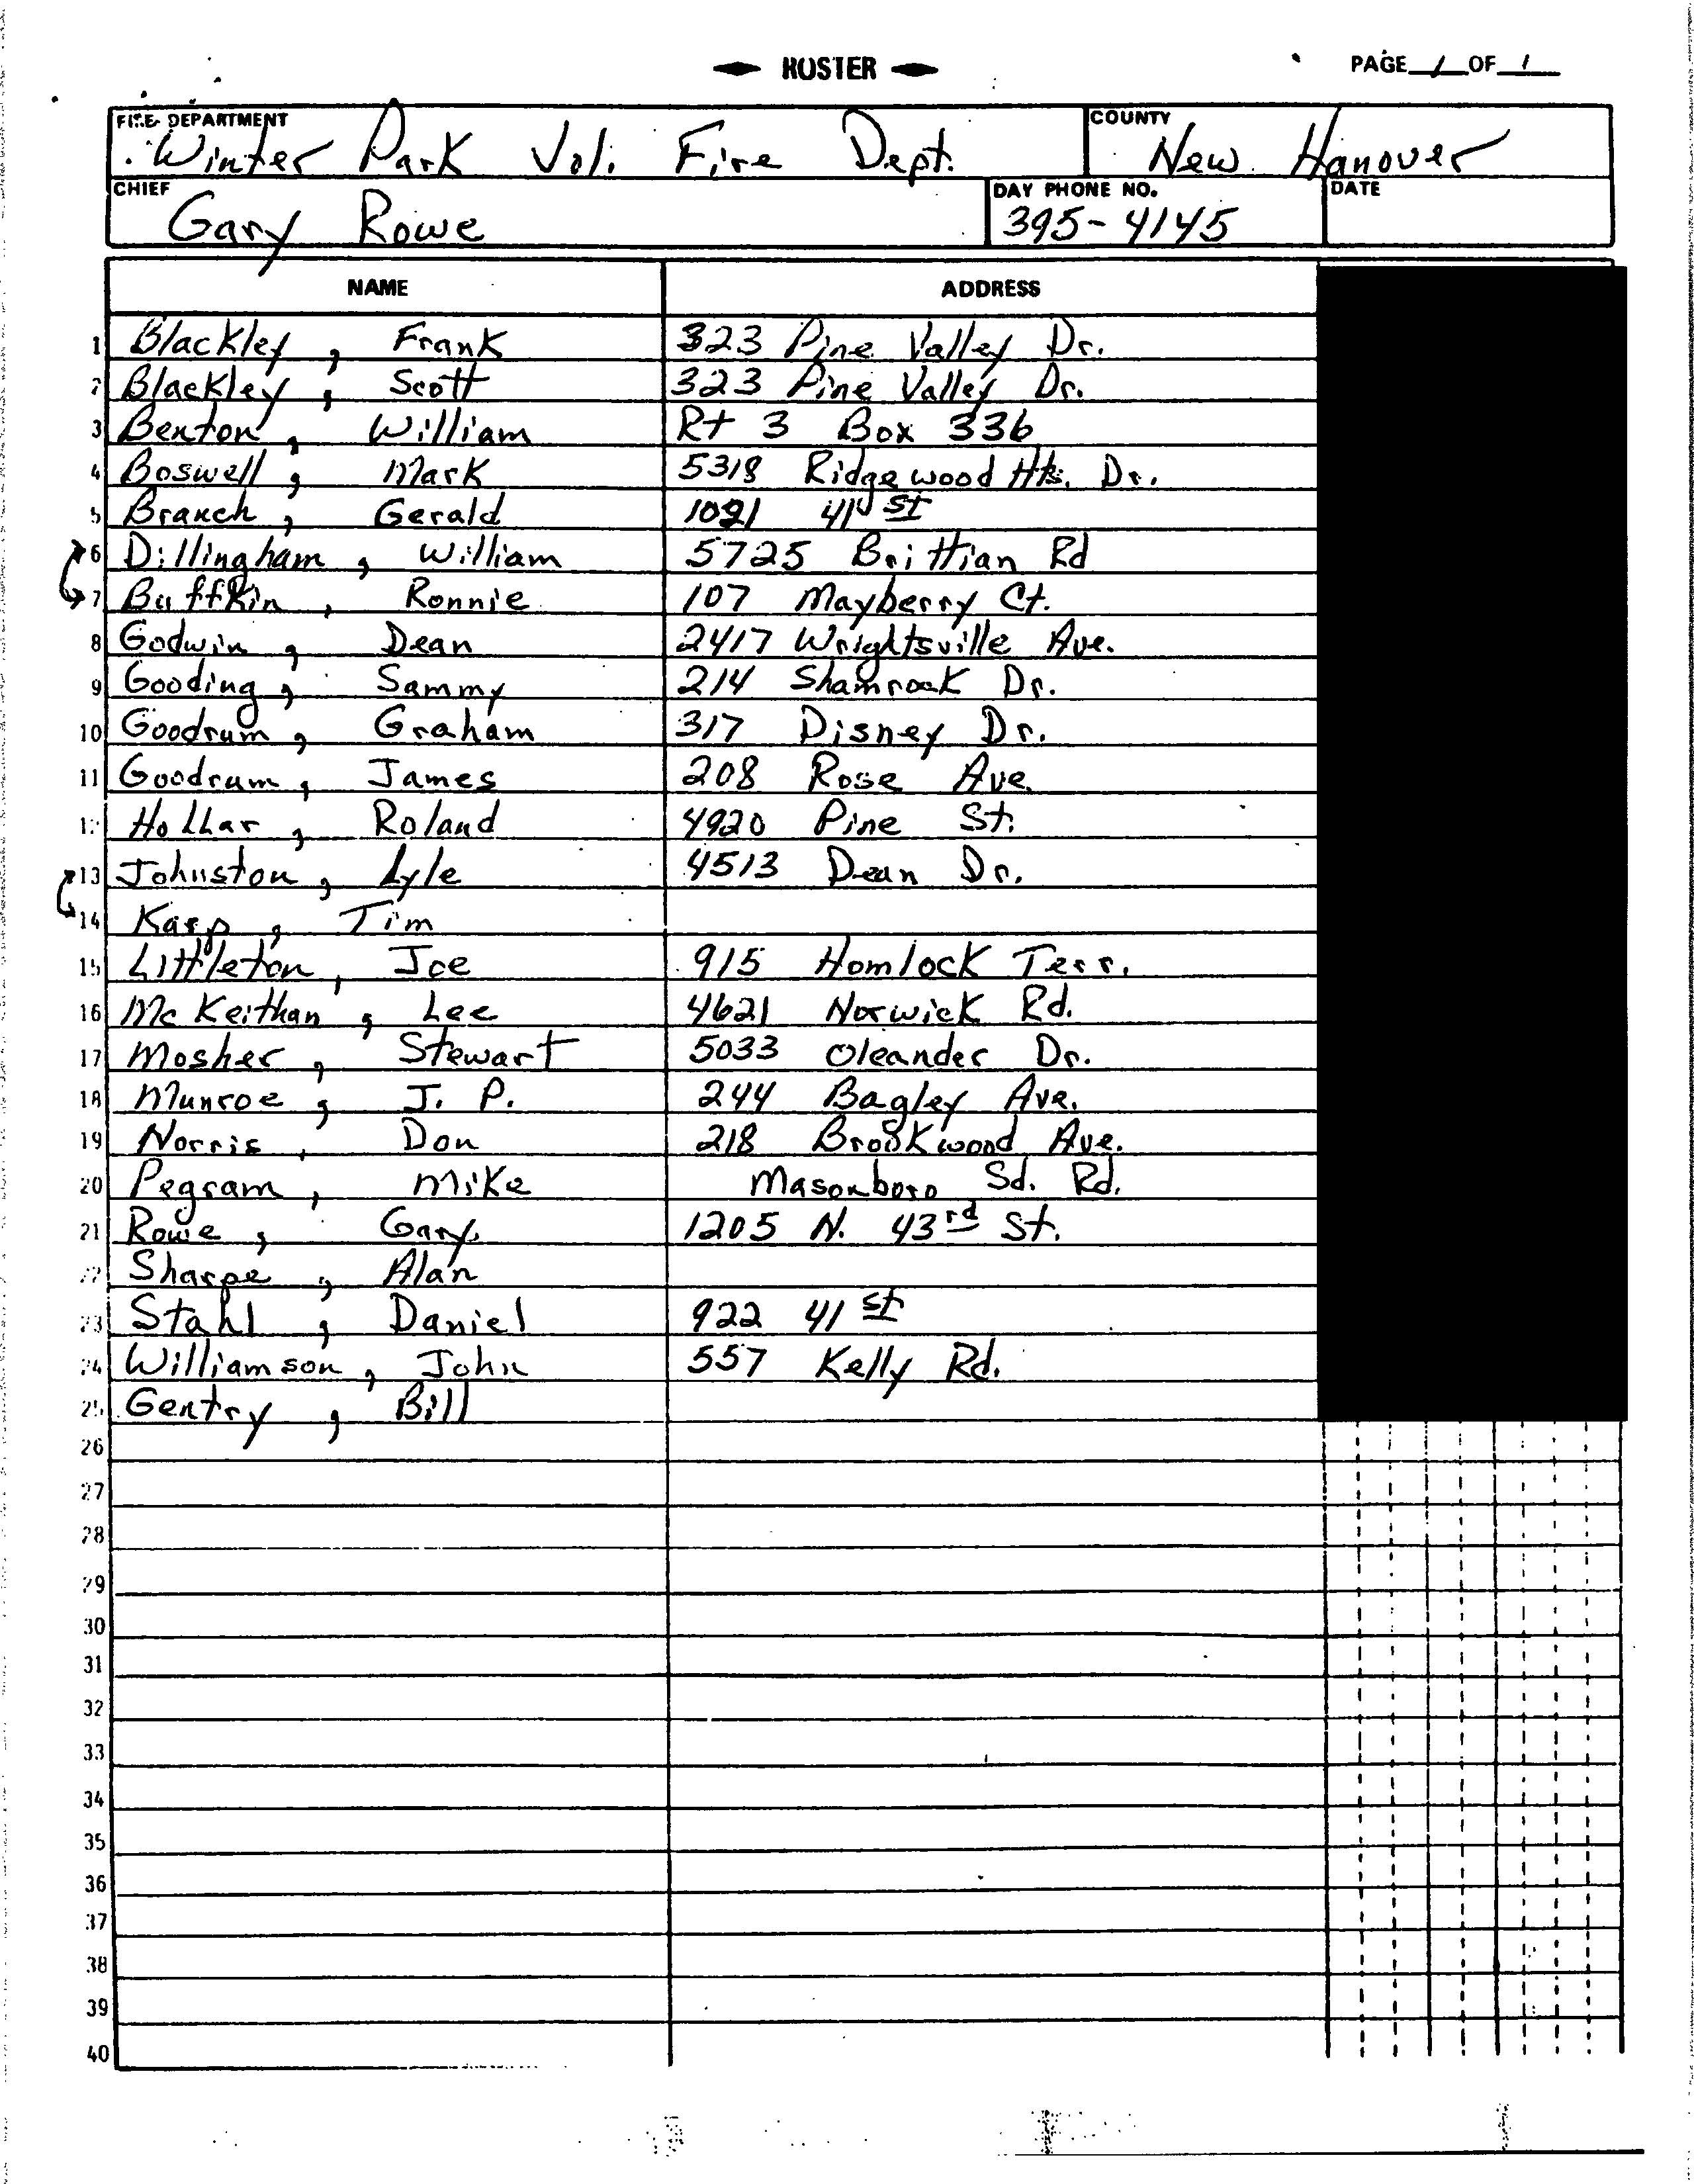 ROSTER
PAGE 1 OF 1
FIRE DEPARTMENT
Winter Park Vol. Fire Dept.
COUNTY
New Hanover
CHIEF
Gary Rowe
DAY PHONE NO.
395-4145
DATE
NAME ADDRESS
1 Blackley, Frank 323 Pine Valley Dr.
2 Blackley, Scott 323 Pine Valley Dr.
3 Benton, William Rt 3 Box 336
4 Boswell, Mark 5318 Ridgewood Hts. Dr.
5 Branch, Gerald 1021 41 st
6 Dillingham, William 5725 Brittian Rd
7 Buffkin, Ronnie 107 Mayberry Ct.
8 Godwin, Dean 2417 Wrightsville Ave.
9 Gooding, Sammy 214 Shamrock Dr.
10 Goodrum, Graham 317 Disney Dr.
11 Goodrum, James 208 Rose Ave.
12 Hollar, Roland 4920 Pine St.
13 Johnston, Lyle 4513 Dean Dr.
14 Karp, Tim
15 Littleton, Joe 915 Homlock Terr.
16 McKeithan, Lee 4621 Norwick Rd.
17 Mosher, Stewart 5033 Oleander Dr.
18 Munroe, J. P. 244 Bagley Ave.
19 Norris, Don 218 Brookwood Ave.
20 Pegram, Mike Masonboro Sd. Rd.
21 Rowe, Gary 1205 N. 43rd St.
22 Sharpe, Alan
23 Stahl, Daniel 922 41 st
24 Williamson, John 557 Kelly Rd.
25 Gentry, Bill
26
27
28
29
30
31
32
33
34
35
36
37
38
39
40